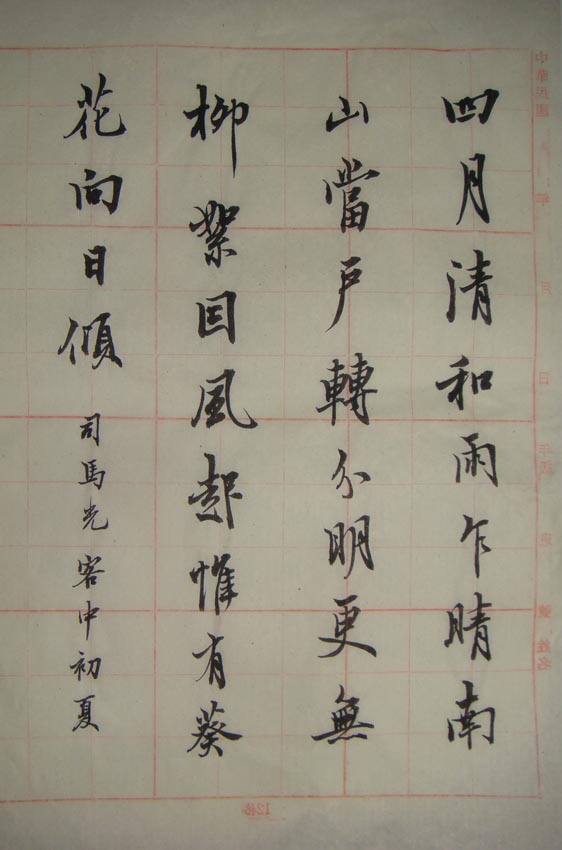 中華民國 年 月 日 年級 班 號 姓名
四月清和雨乍晴南
山當戶轉分明更無
柳絮因風起惟有葵
花向日傾 司馬光 客中初夏